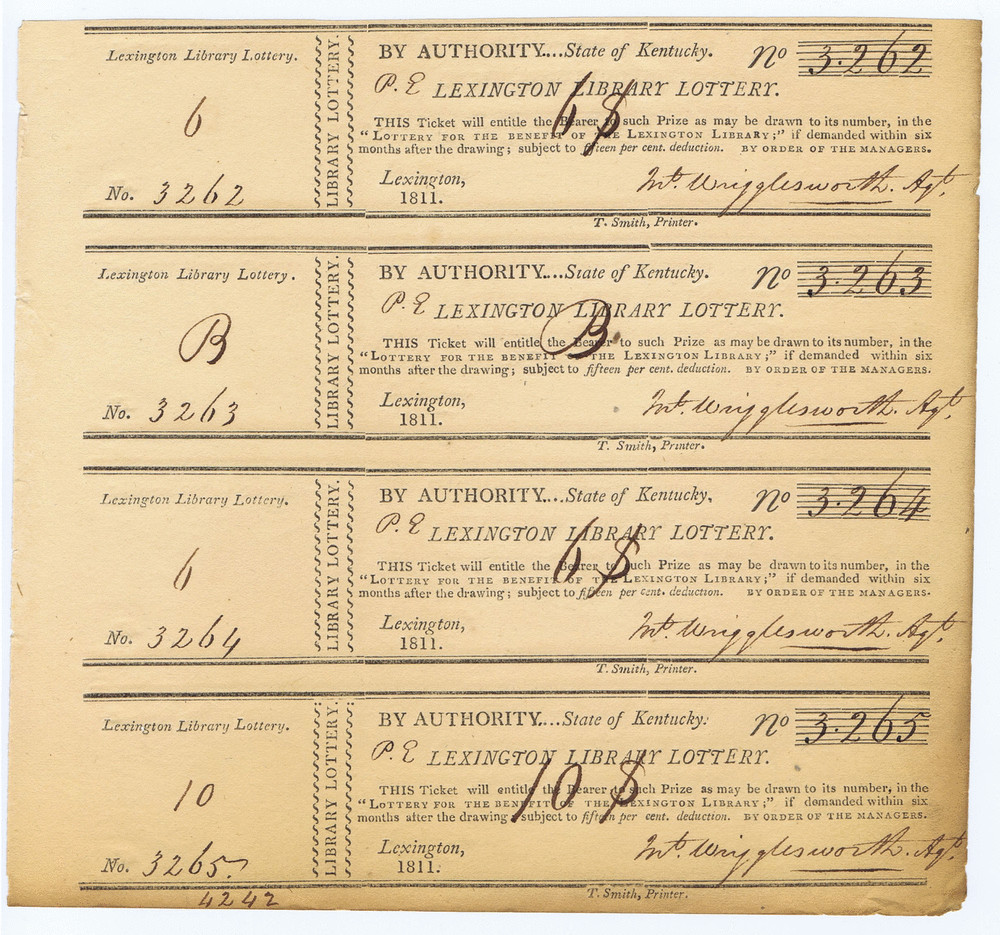 Lexington Library Lottery.
6
No. 3262
LIBRARY LOTTERY.
BY AUTHORITY....State of Kentucky. No 3.262
P. E LEXINGTON LIBRARY LOTTERY.
6 $
THIS Ticket will entitle the Bearer to such Prize as may be drawn to its number, in the
"LOTTERY FOR THE BENEFIT OF THE LEXINGTON LIBRARY;" if demanded within six
months after the drawing; subject to fifteen per cent. deduction. BY ORDER OF THE MANAGERS.
Lexington,
1811.
Wrigglesworth. Agt.
T. Smith, Printer.
Lexington Library Lottery.
B
No. 3263
LIBRARY LOTTERY.
BY AUTHORITY....State of Kentucky. No 3.263
P. E LEXINGTON LIBRARY LOTTERY.
B.
THIS Ticket will entitle the Bearer to such Prize as may be drawn to its number, in the
"LOTTERY FOR THE BENEFIT OF THE LEXINGTON LIBRARY;" if demanded within six
months after the drawing; subject to fifteen per cent. deduction. BY ORDER OF THE MANAGERS.
Lexington,
1811.
Wrigglesworth. Agt.
T. Smith, Printer.
Lexington Library Lottery.
6
No. 3264
LIBRARY LOTTERY.
BY AUTHORITY....State of Kentucky, No 3.264
P. E LEXINGTON LIBRARY LOTTERY.
6 $
THIS Ticket will entitle the Bearer to such Prize as may be drawn to its number, in the
"LOTTERY FOR THE BENEFIT OF THE LEXINGTON LIBRARY;" if demanded within six
months after the drawing; subject to fifteen per cent. deduction. BY ORDER OF THE MANAGERS.
Lexington,
1811.
Wrigglesworth. Agt.
T. Smith, Printer.
Lexington Library Lottery.
10
No. 3265
4242
LIBRARY LOTTERY.
BY AUTHORITY....State of Kentucky. No 3.265
P. E LEXINGTON LIBRARY LOTTERY.
10 $
THIS Ticket will entitle the Bearer to such Prize as may be drawn to its number, in the
"LOTTERY FOR THE BENEFIT OF THE LEXINGTON LIBRARY;" if demanded within six
months after the drawing; subject to fifteen per cent. deduction. BY ORDER OF THE MANAGERS.
Lexington,
1811.
Wrigglesworth. Agt.
T. Smith, Printer.